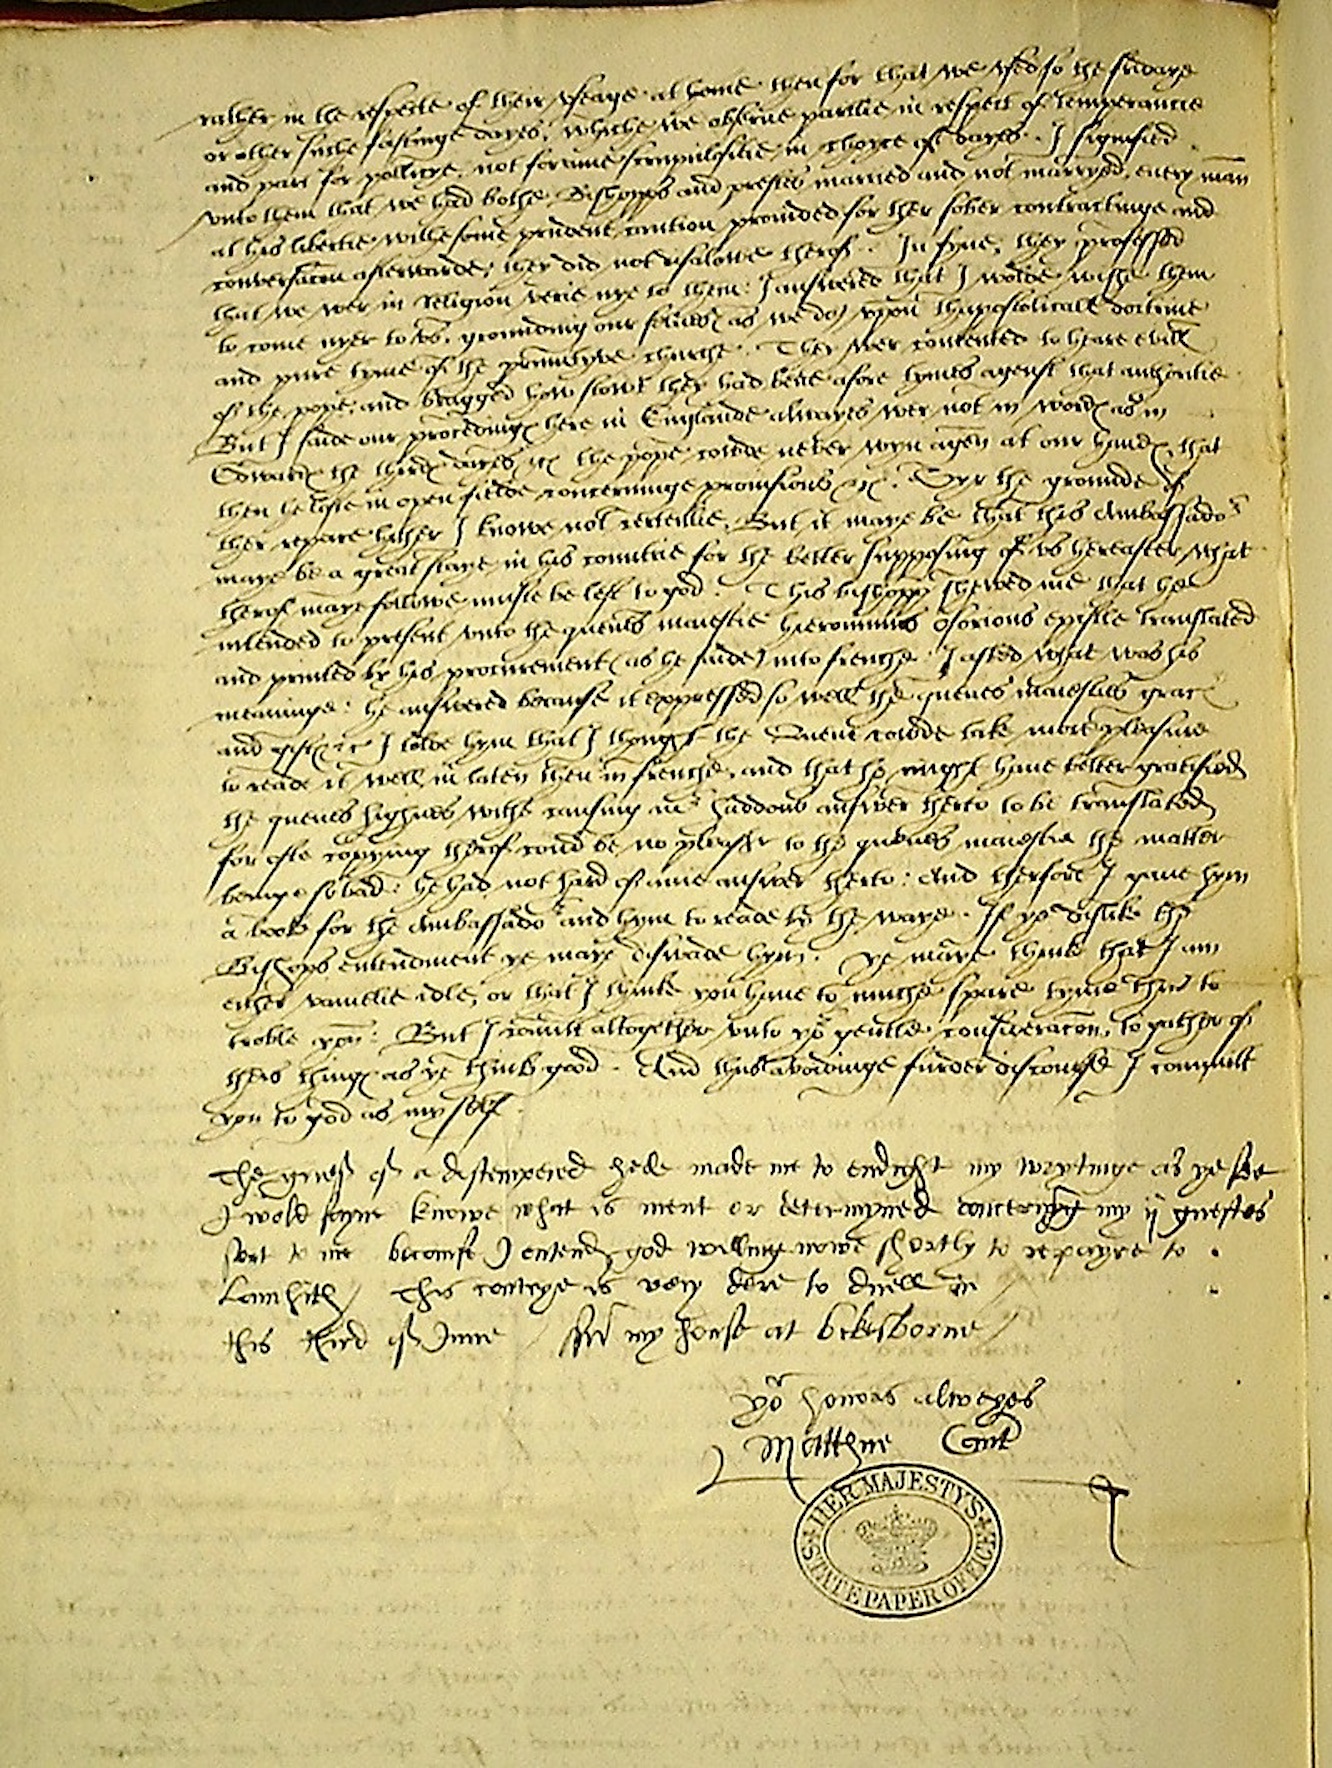 rather in the respecte of their vsage at home then for that we vsed so the fridaye
or other suche fastinge dayes, whiche we obserue partlie in respect of temperancie
and part for pollicye, not for anie scrupulositie in choyce of dayes. I signified
vnto them that we had bothe Bishopps and prestes married and not marryed, euery man
at his libertie withe some prudent caution prouided for ther sober contractinge and
conuersacon afterwarde, they did not disalowe therof. In fyne, they professed
that we wer in religion verie nye to them: I answered that I wolde wishe them
to come nyer to vs, grounding our selues (as we do) vpon thappostolicall doctrine
and pure tyme of the primityve churche. They wer contented to heare evill
of the pope, and bragged how stowt they had bene afore tymes agenst that authoritie
But I saide our procedings here in Englande alwayes wer not in words as in
Edwards the thirds dayes &c the pope cowde never wyn agen at our hands, that
then he loste in open fielde concerninge prouisions &c. Syr the grounde of
ther repare hither I knowe not certeinlie, But it maye be that this Ambassador
maye be a great staye in his countrie for the better supposing of vs hereafter, what
therof maye followe muste be left to god. This bishopp shewed me that he
intended to present vnto the quenes maiestie hieronimus Osorious epistle translated
and printed by his procurement (as he saide) into frenche: I asked what was his
meaninge: he answered because it expressed so well the quenes maiesties graces
and gifts &c I tolde hym that I thought the Quene cowde take more pleasure
to reade it well in laten then in frenche, and that he might haue better gratified
the quenes highnes withe causing mr haddons answer therto to be translated
for ofte copying therof coud be no pleasur to the quenes maiestie the matter
beinge so bad: he had not hard of anie answer therto: And therfore I gaue hym
a book for the Ambassador and hym to reade by the waye. If ye dislike the
Bishops entendment ye maye diswade hym. Ye maye think that I am
either vainelie idle, or that I thinke you haue to muche spare tyme thus to
troble you: But I comitt altogether vnto yor gentle consideracon, to gather of
theis things as ye think good. And thus avoidinge furder discourse I committ
you to god as my self.
The grief of a distempered hede made me to endight my wrytinge as ye se
I wold fayne knowe what is ment or determyned concerning my ij guestes
sent to me because I entend, god willing nowe shortly to repayre to
Lambhith / This contrye is very dere to dwell in
this third of June / ffrom my house at bekesborne /
yor honors alweyes
Matthue Cant
HER MAJESTY'S STATE PAPER OFFICE